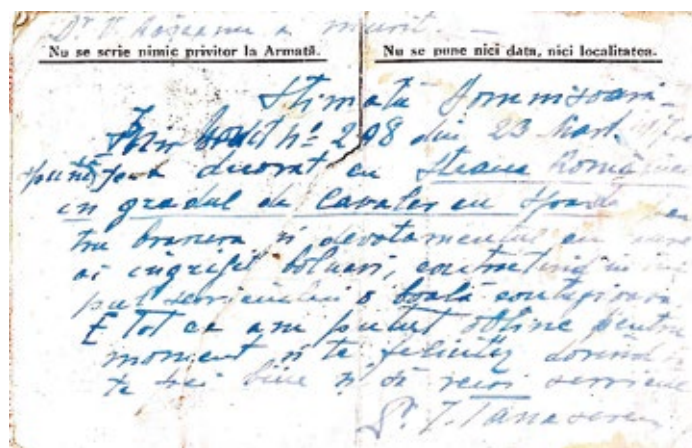 Dr. V. Roșeanu a murit. —
Nu se scrie nimic privitor la Armată. Nu se pune nici data, nici localitatea.
Stimată Domnișoară
Prin Brevet Nº 208 din 23 Mart.
fost decorat cu Steaua României
in gradul de Cavaler cu Spade pen
tru bravura si devotamentul cu care
ai ingrijit bolnavi, contractând in tim
pul serviciului o boală contagioasă
E tot ce am putut obtine pentru
moment si te felicit dorind
te faci bine si să reiei serviciul
Dr. I. Tanasescu